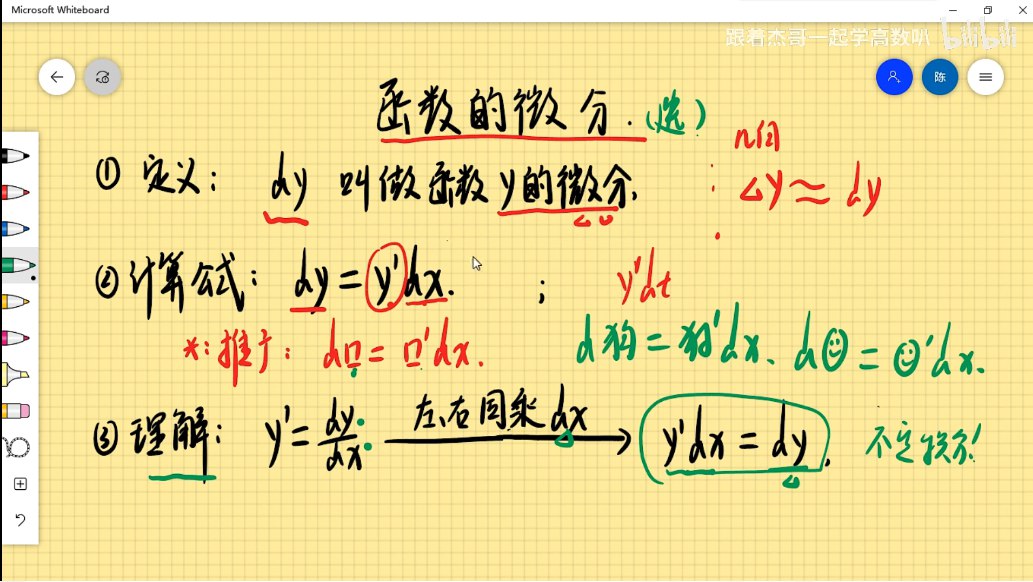 Microsoft Whiteboard
跟着杰哥一起学高数叭 bilibili
陈
函数的微分.(选)
① 定义: dy 叫做函数 y的微分.
Δy≈dy
② 计算公式: dy=y'dx. ; y'dt
*:推广: d□=□'dx.
d狗=狗'dx. d☺=☺'dx.
③ 理解: y'=dy/dx 左、右同乘dx y'dx=dy. 不定积分!